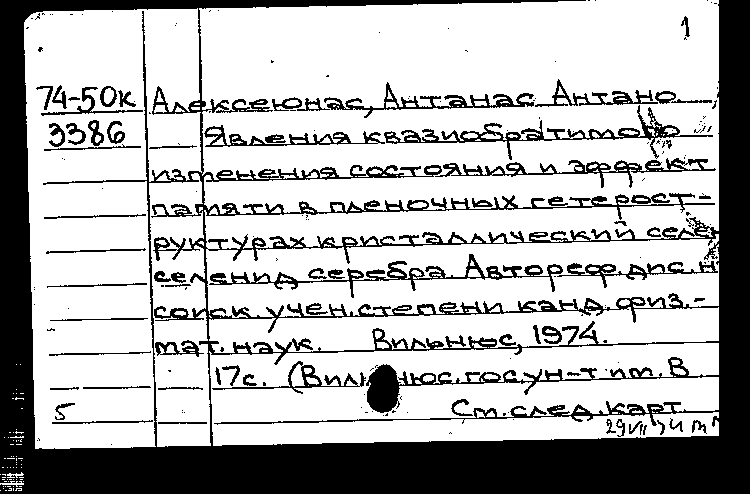 1
74-50к Алексеюнас, Антанас Антано.
3386 Явления квазиобратимого
изменения состояния и эффект
памяти в пленочных гетерост-
руктурах кристаллический селен
селенид серебра. Автореф. дис. н
соиск. учен. степени канд. физ.-
мат. наук. Вильнюс, 1974.
17с. (Вильнюс. гос. ун-т им. В.
5 См. след. карт.